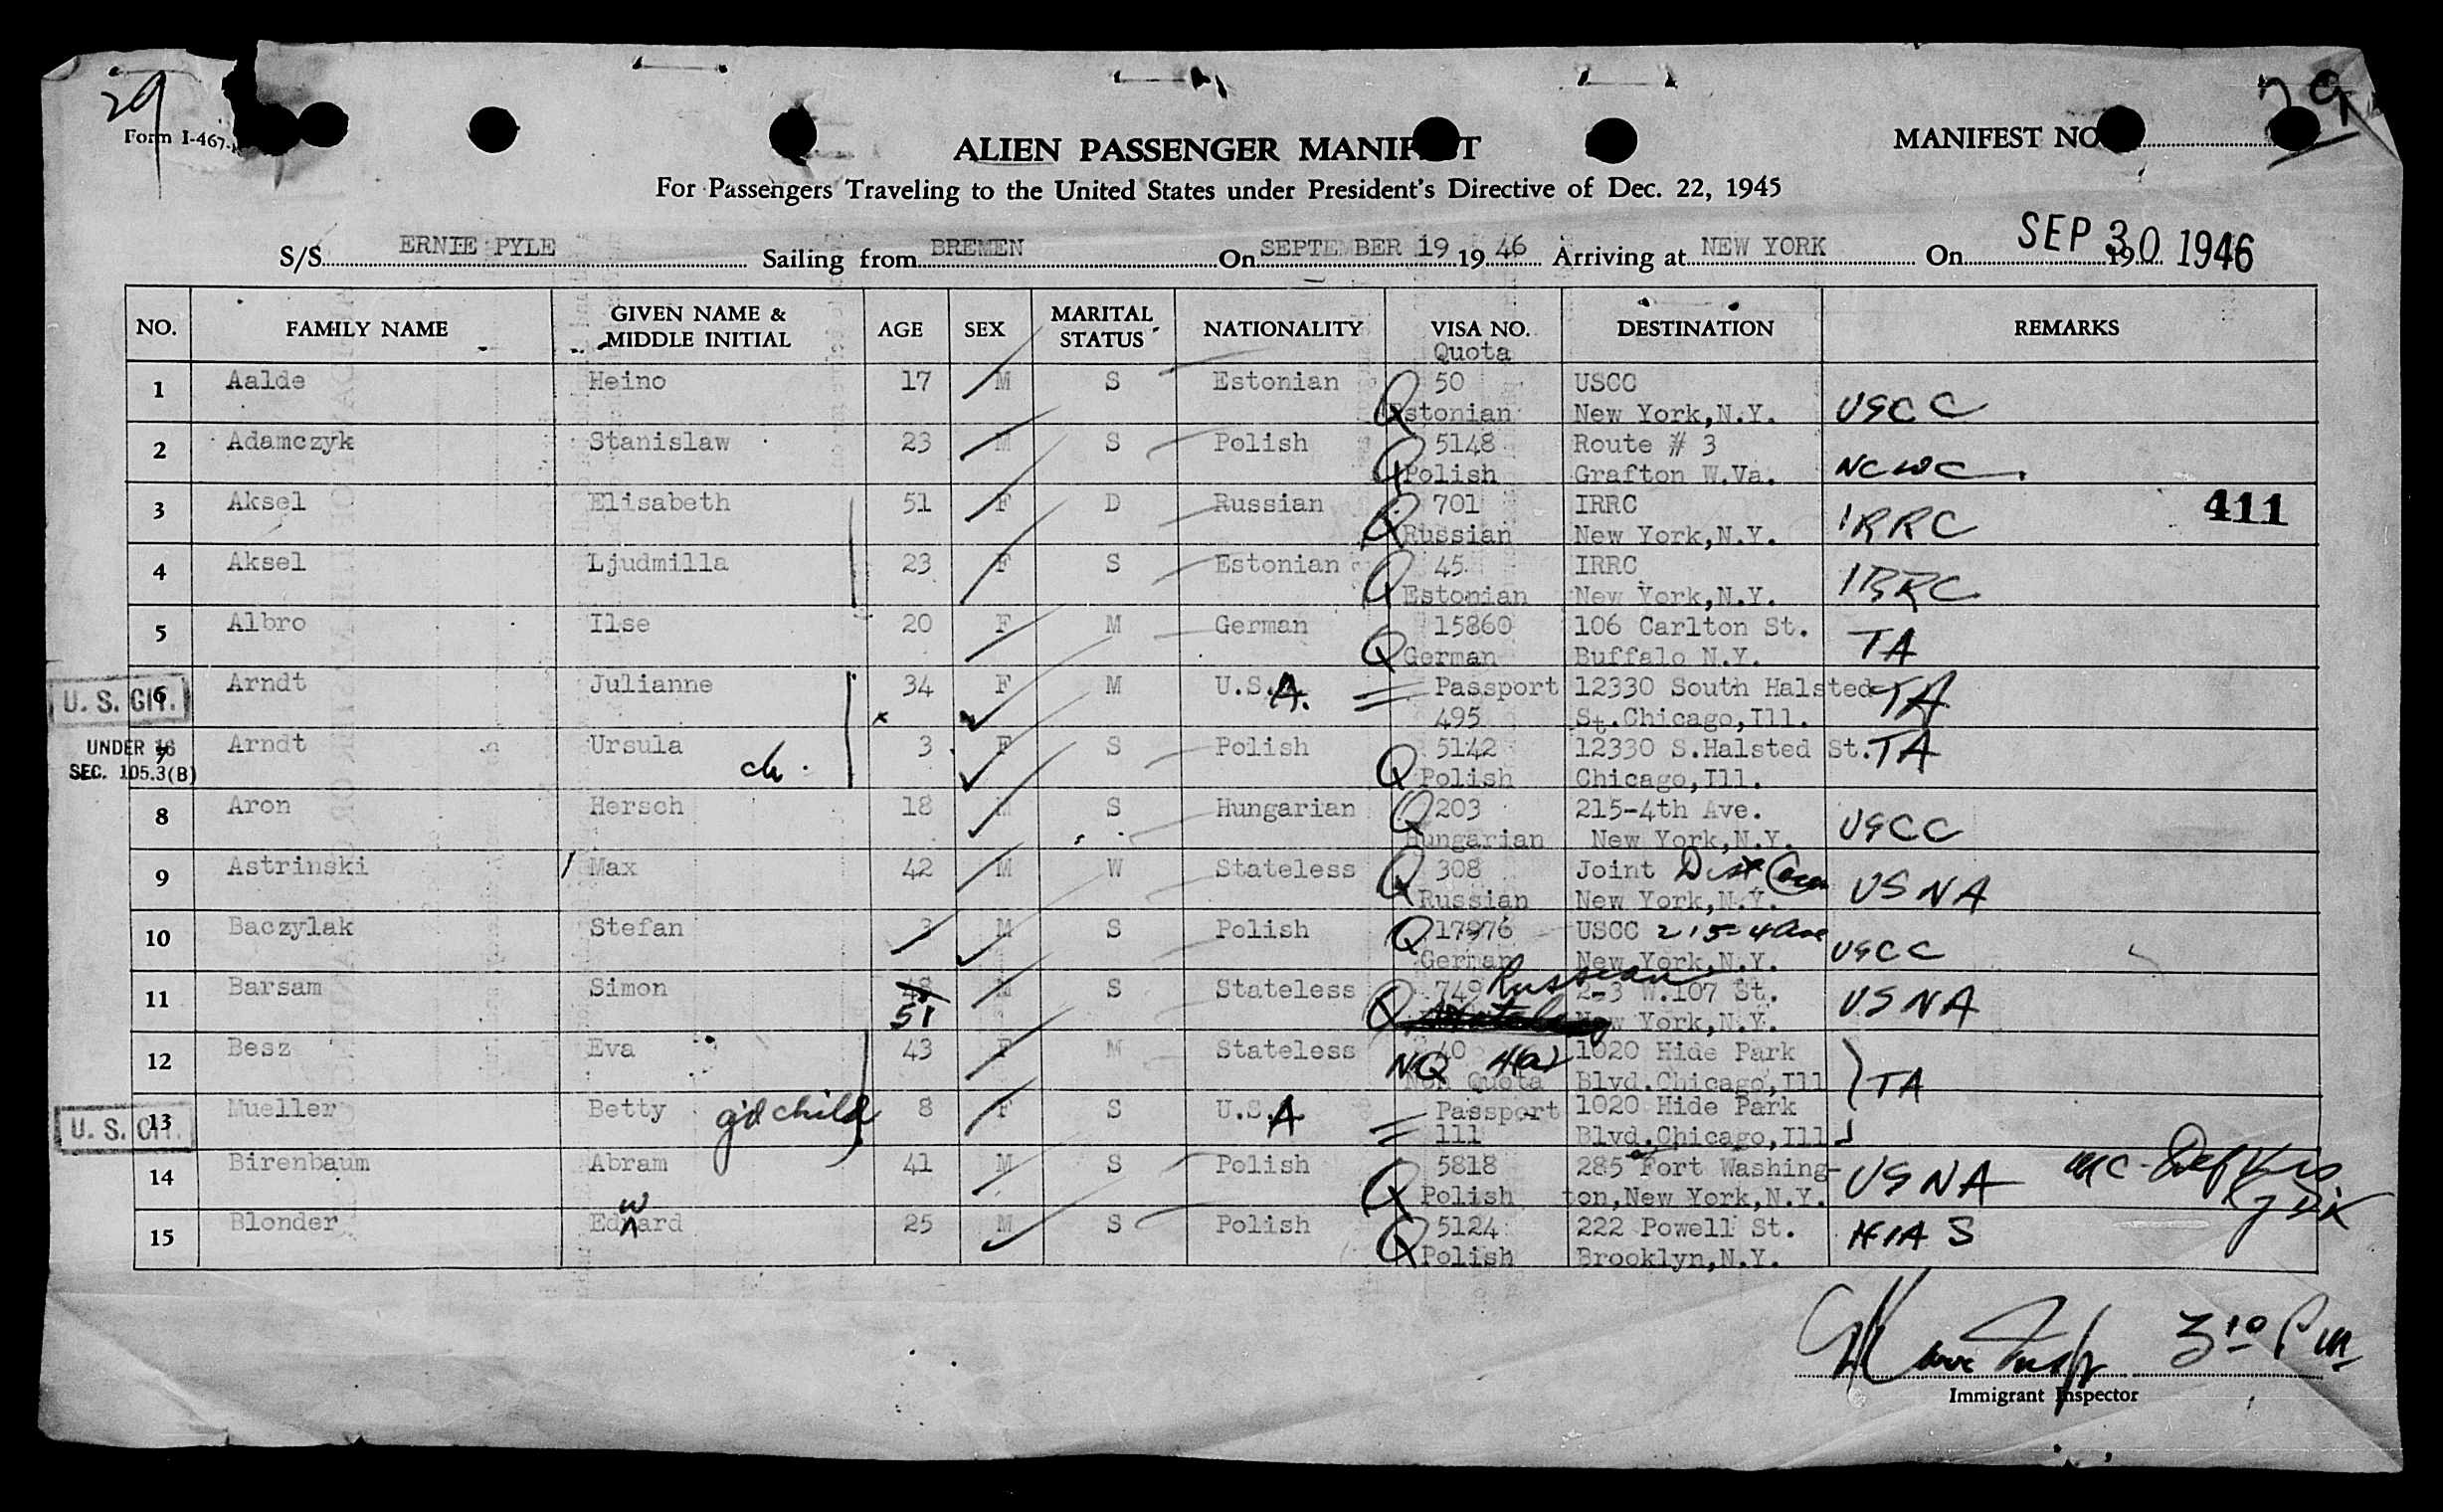 29
29
Form I-467-
ALIEN PASSENGER MANIF T
MANIFEST NO
For Passengers Traveling to the United States under President's Directive of Dec. 22, 1945
S/S ERNIE PYLE Sailing from BREMEN On SEPTEMBER 19 19 46 Arriving at NEW YORK On SEP 30 1946 19
NO. FAMILY NAME GIVEN NAME & MIDDLE INITIAL AGE SEX MARITAL STATUS NATIONALITY VISA NO. Quota DESTINATION REMARKS
1 Aalde Heino 17 M S Estonian 50 USCC
Q Estonian New York,N.Y. USCC
2 Adamczyk Stanislaw 23 M S Polish 5148 Route # 3
Q Polish Grafton W.Va. NCWC
3 Aksel Elisabeth 51 F D Russian 701 IRRC 411
Q Russian New York,N.Y. IRRC
4 Aksel Ljudmilla 23 F S Estonian 45 IRRC
Q Estonian New York,N.Y. IRRC
5 Albro Ilse 20 F M German 15860 106 Carlton St.
Q German Buffalo N.Y. TA
U. S. CIT. 6 Arndt Julianne 34 F M U.S.A. Passport 12330 South Halsted TA
x 495 St.Chicago,Ill.
UNDER 16 7 Arndt Ursula 3 F S Polish 5142 12330 S.Halsted St. TA
SEC. 105.3(B) ch. Q Polish Chicago,Ill.
8 Aron Hersch 18 M S Hungarian Q 203 215-4th Ave.
Hungarian New York,N.Y. USCC
9 Astrinski Max 42 M W Stateless Q 308 Joint Dist Com
Russian New York,N.Y. USNA
10 Baczylak Stefan 3 M S Polish Q 17976 USCC 215-4 Ave
German New York,N.Y. USCC
11 Barsam Simon 48 M S Stateless 749 Russian 2-3 W.107 St.
51 Q New York,N.Y. USNA
12 Besz Eva 43 F M Stateless NQ 40 1020 Hide Park
Non Quota Blvd.Chicago,Ill TA
U. S. CIT. 13 Mueller Betty g'd child 8 F S U.S.A Passport 1020 Hide Park
111 Blvd.Chicago,Ill
14 Birenbaum Abram 41 M S Polish 5818 285 Fort Washing-
Q Polish ton,New York,N.Y. USNA
15 Blonder Ednard w 25 M S Polish 5124 222 Powell St.
Q Polish Brooklyn,N.Y. HIAS
3 10 Pm
Immigrant Inspector